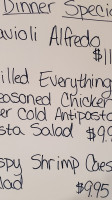 Dinner Specia
avioli Alfredo
$11
illed Everything
easoned Chicken
er Cold Antipasto
sta Salad $9.9
spy Shrimp Caes
lad
$9.95